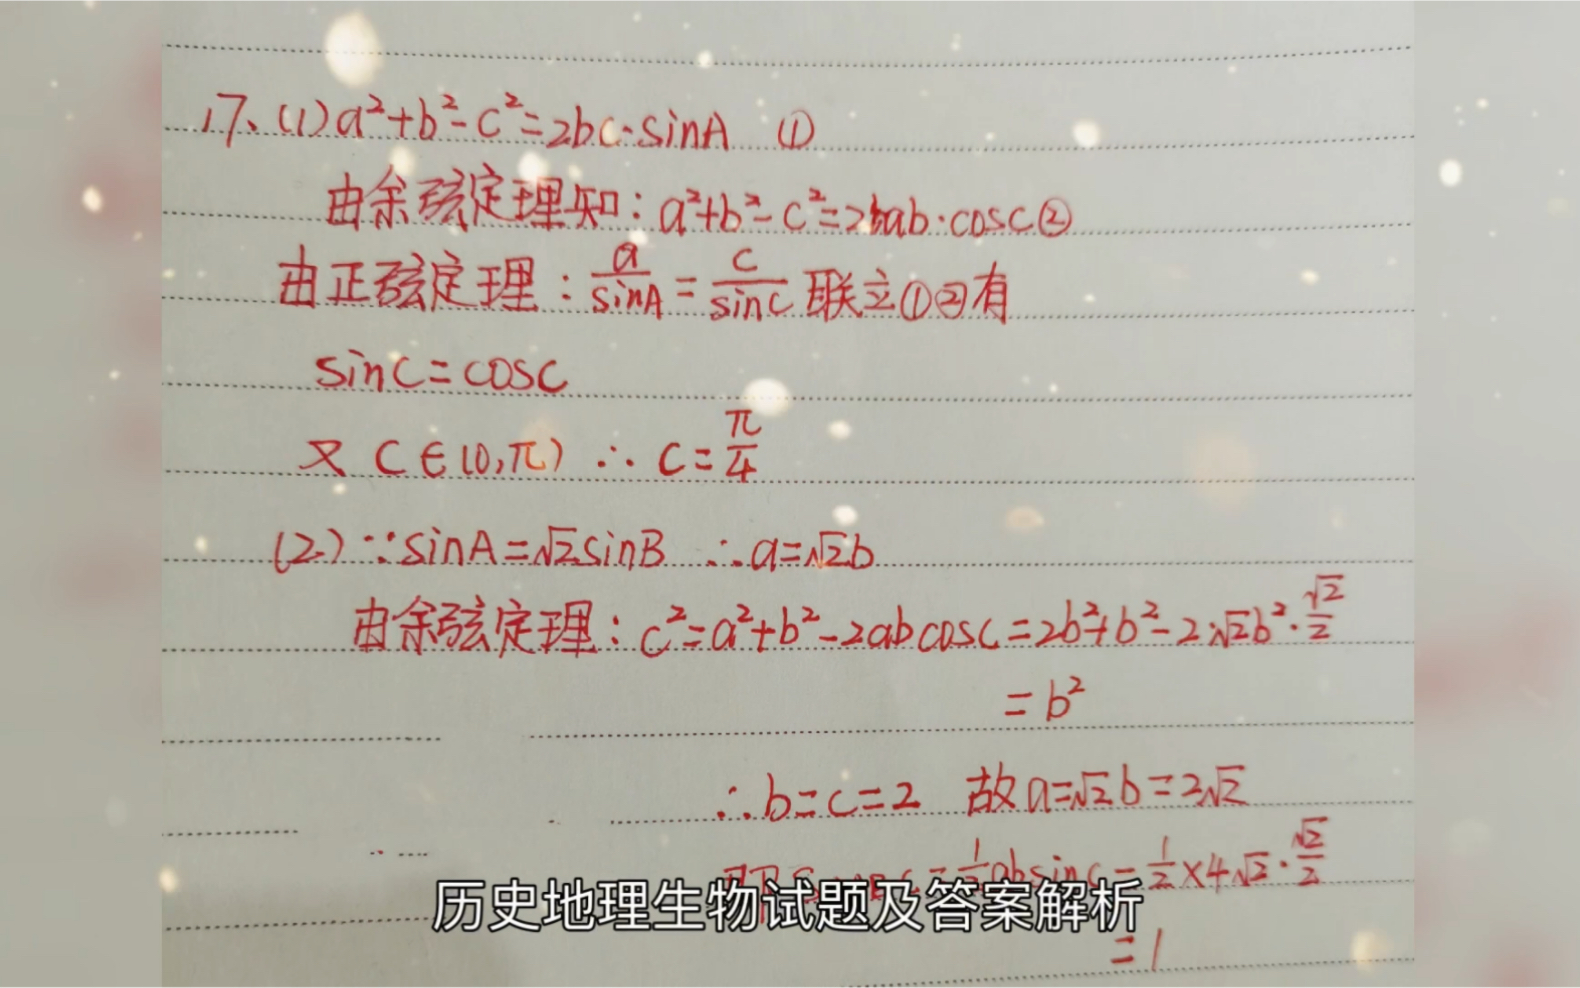 17、(1) a²+b²-c²=2bc·sinA ①
由余弦定理知：a²+b²-c²=2ab·cosC②
由正弦定理：a/sinA=c/sinC 联立①②有
sinC=cosC
又 C∈(0,π) ∴ C=π/4
(2) ∵sinA=√2sinB ∴a=√2b
由余弦定理：c²=a²+b²-2abcosC=2b²+b²-2·√2b²·√2/2
=b²
∴b=c=2 故a=√2b=2√2
=1/2absinC=1/2×4√2·√2/2
历史地理生物试题及答案解析
=1